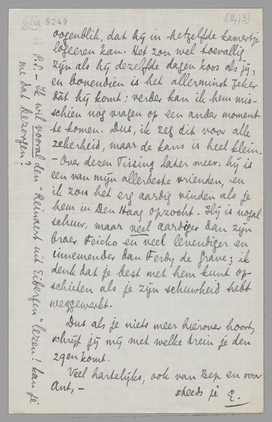 oogenblik, dat hij in hetzelfde kamertje
logeeren kan. Het zou wel toevallig
zijn als hij dezelfde dagen koos als jij,
en bovendien is het allerminst zeker
dàt hij komt; verder kan ik hem mis-
schien nog vragen op een ander moment
te komen. Dus, ik zeg dit voor alle
zekerheid, maar de kans is heel klein.
- Over dezen Tissing later meer: hij is
een van mijn allerbeste vrienden, en
ik zou het erg aardig vinden als je
hem in Den Haag opzocht. Hij is nogal
schuw, maar veel aardiger dan zijn
broer Feicko en veel levendiger en
innemender dan Ferdy de Grave; ik
denk dat je best met hem kunt op-
schieten als je zijn schuwheid hebt
weggewerkt.
Dus als je niets meer hierover hoort,
schrijf jij mij met welke trein je den
29en komt.
Veel hartelijks, ook van Bep en voor
Ant, -
steeds je E.
P.S. - Ik wil vooral den "Reinaert uit Tibergen" lezen! Kan je
me dat bezorgen?